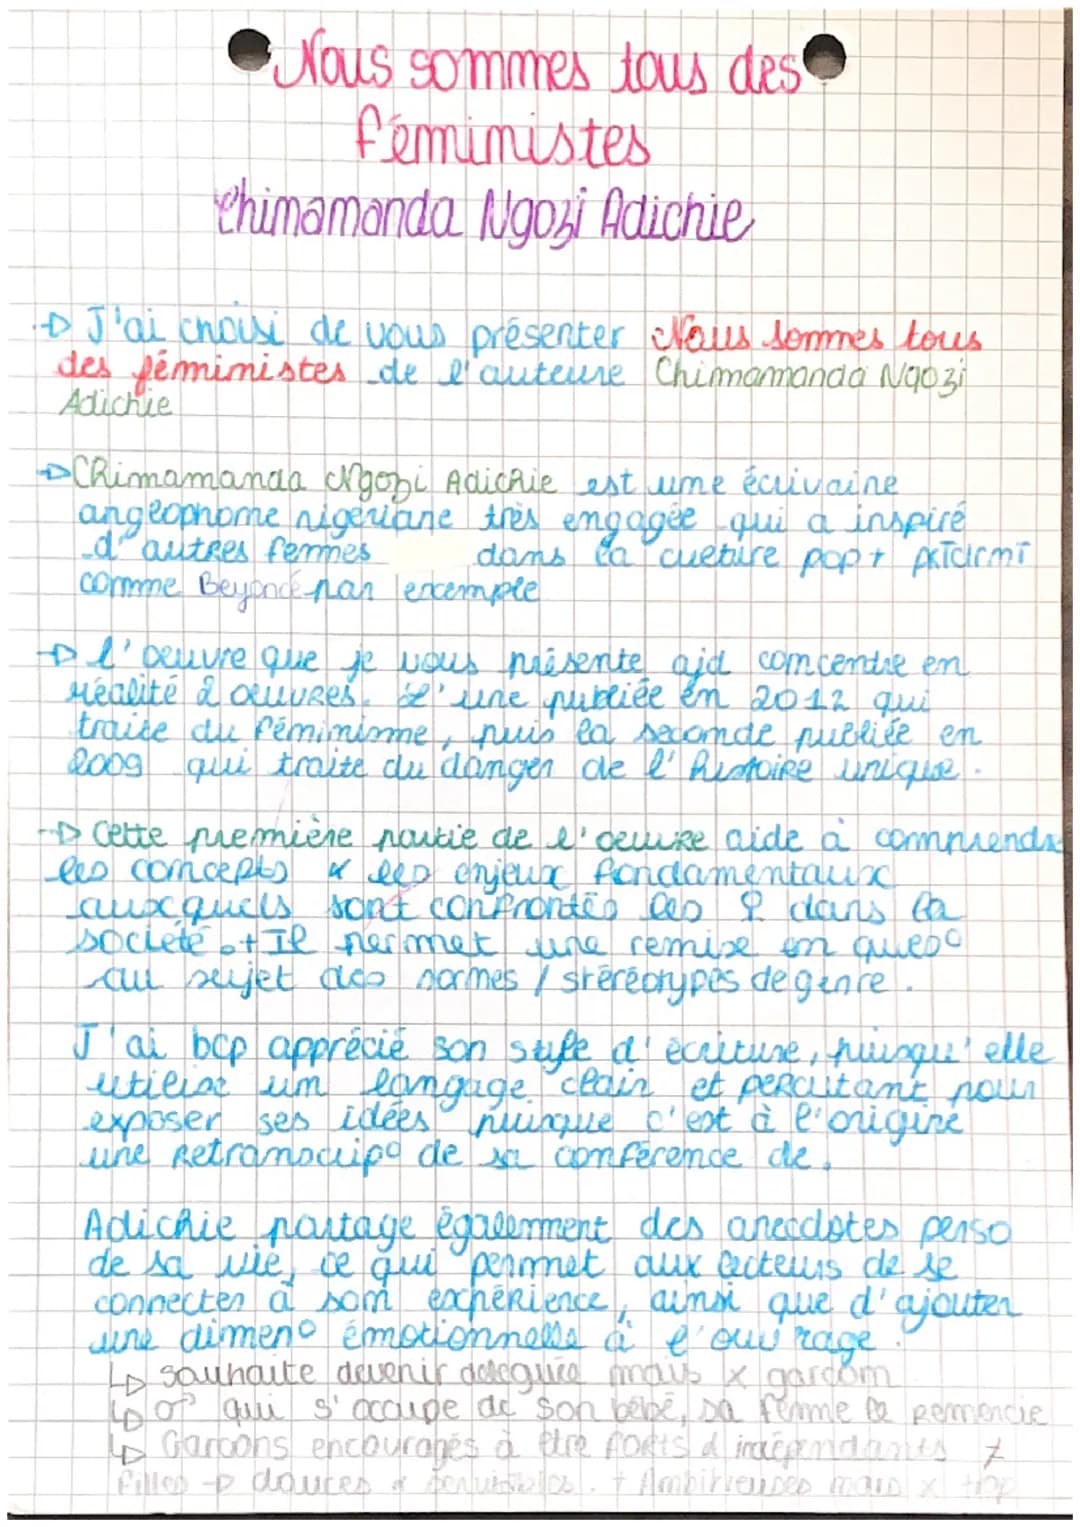 Nous sommes tous des
féministes
Chimamanda Ngozi Adichie
J'ai choisi de vous présenter Nous sommes tous
des féministes de l'auteure Chimamanda Ngozi
Adichie
Chimamanda Ngozi Adichie est une écrivaine
anglophone nigériane très engagée qui a inspiré
d'autres femmes dans la culture pop +
comme Beyoncé par exemple
l'oeuvre que je vous présente ajd concentre en
réalité 2 œuvres. L'une publiée en 2012 qui
traite du féminisme, puis la seconde publiée en
2009 qui traite du danger de l'histoire unique.
Cette première partie de l'oeuvre aide à comprendre
les concepts & les enjeux fondamentaux
auxquels sont confrontés les ♀ dans la
société. + Il permet une remise en ques°
au sujet des normes / stéréotypes de genre.
J'ai bcp apprécié son style d'écriture, puisqu'elle
utilise un langage clair et percutant pour
exposer ses idées puisque c'est à l'origine
une retranscrip° de sa conférence de.
Adichie partage également des anecdotes perso
de sa vie, ce qui permet aux lecteurs de se
connecter à son expérience, ainsi que d'ajouter
une dimen° émotionnelle à l'ouvrage.
↳ souhaite devenir déléguée mais x garçom
↳ ♂ qui s'occupe de son bébé, sa femme le remercie
↳ Garçons encouragés à être forts & indépendants ≠
filles → douces & sensibles. + Ambitieuses mais x trop